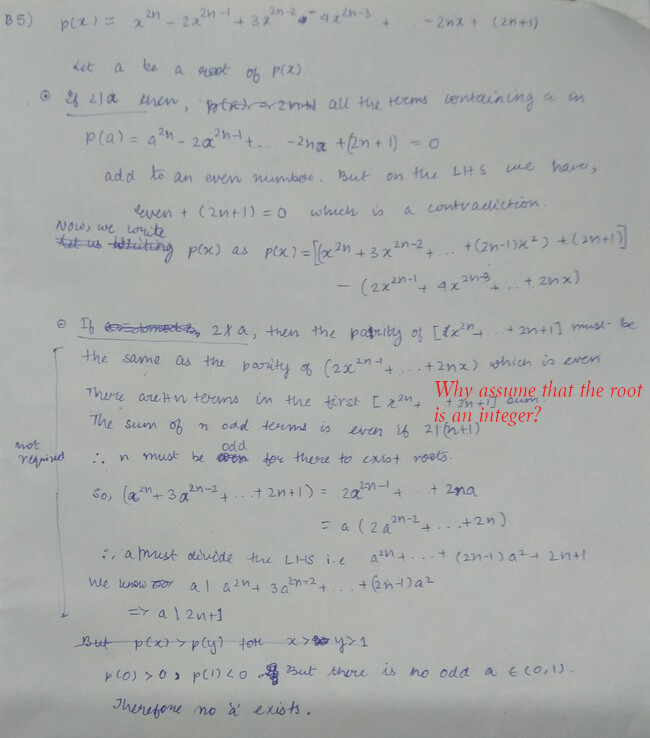 B5) p(x) = x^{2n} - 2x^{2n-1} + 3x^{2n-2} - 4x^{2n-3} + .. - 2nx + (2n+1)
Let a be a root of p(x)
If 2|a then, all the terms containing a in
p(a) = a^{2n} - 2a^{2n-1} + .. - 2na + (2n+1) = 0
add to an even number. But on the LHS we have,
even + (2n+1) = 0 which is a contradiction.
Now, we write
p(x) as p(x) = [(x^{2n} + 3x^{2n-2} + .. + (2n-1)x^2) + (2n+1)]
- (2x^{2n-1} + 4x^{2n-3} + .. + 2nx)
If 2∤a, then the parity of [x^{2n} + .. + 2n+1] must be
the same as the parity of (2x^{2n-1} + .. + 2nx) which is even
There are n terms in the first [x^{2n} + .. + 2n+1] sum.
Why assume that the root
is an integer?
The sum of n odd terms is even if 2|(n+1)
not
required
∴ n must be odd for there to exist roots.
So, (a^{2n} + 3a^{2n-2} + .. + 2n+1) = 2a^{2n-1} + .. + 2na
= a(2a^{2n-2} + .. + 2n)
∴ a must divide the LHS i.e a^{2n} + .. + (2n-1)a^2 + 2n+1
We know a | a^{2n} + 3a^{2n-2} + .. + (2n-1)a^2
=> a | 2n+1
But p(x) > p(y) for x > y > 1
p(0) > 0, p(1) < 0 But there is no odd a ∈ (0,1).
Therefore no 'a' exists.